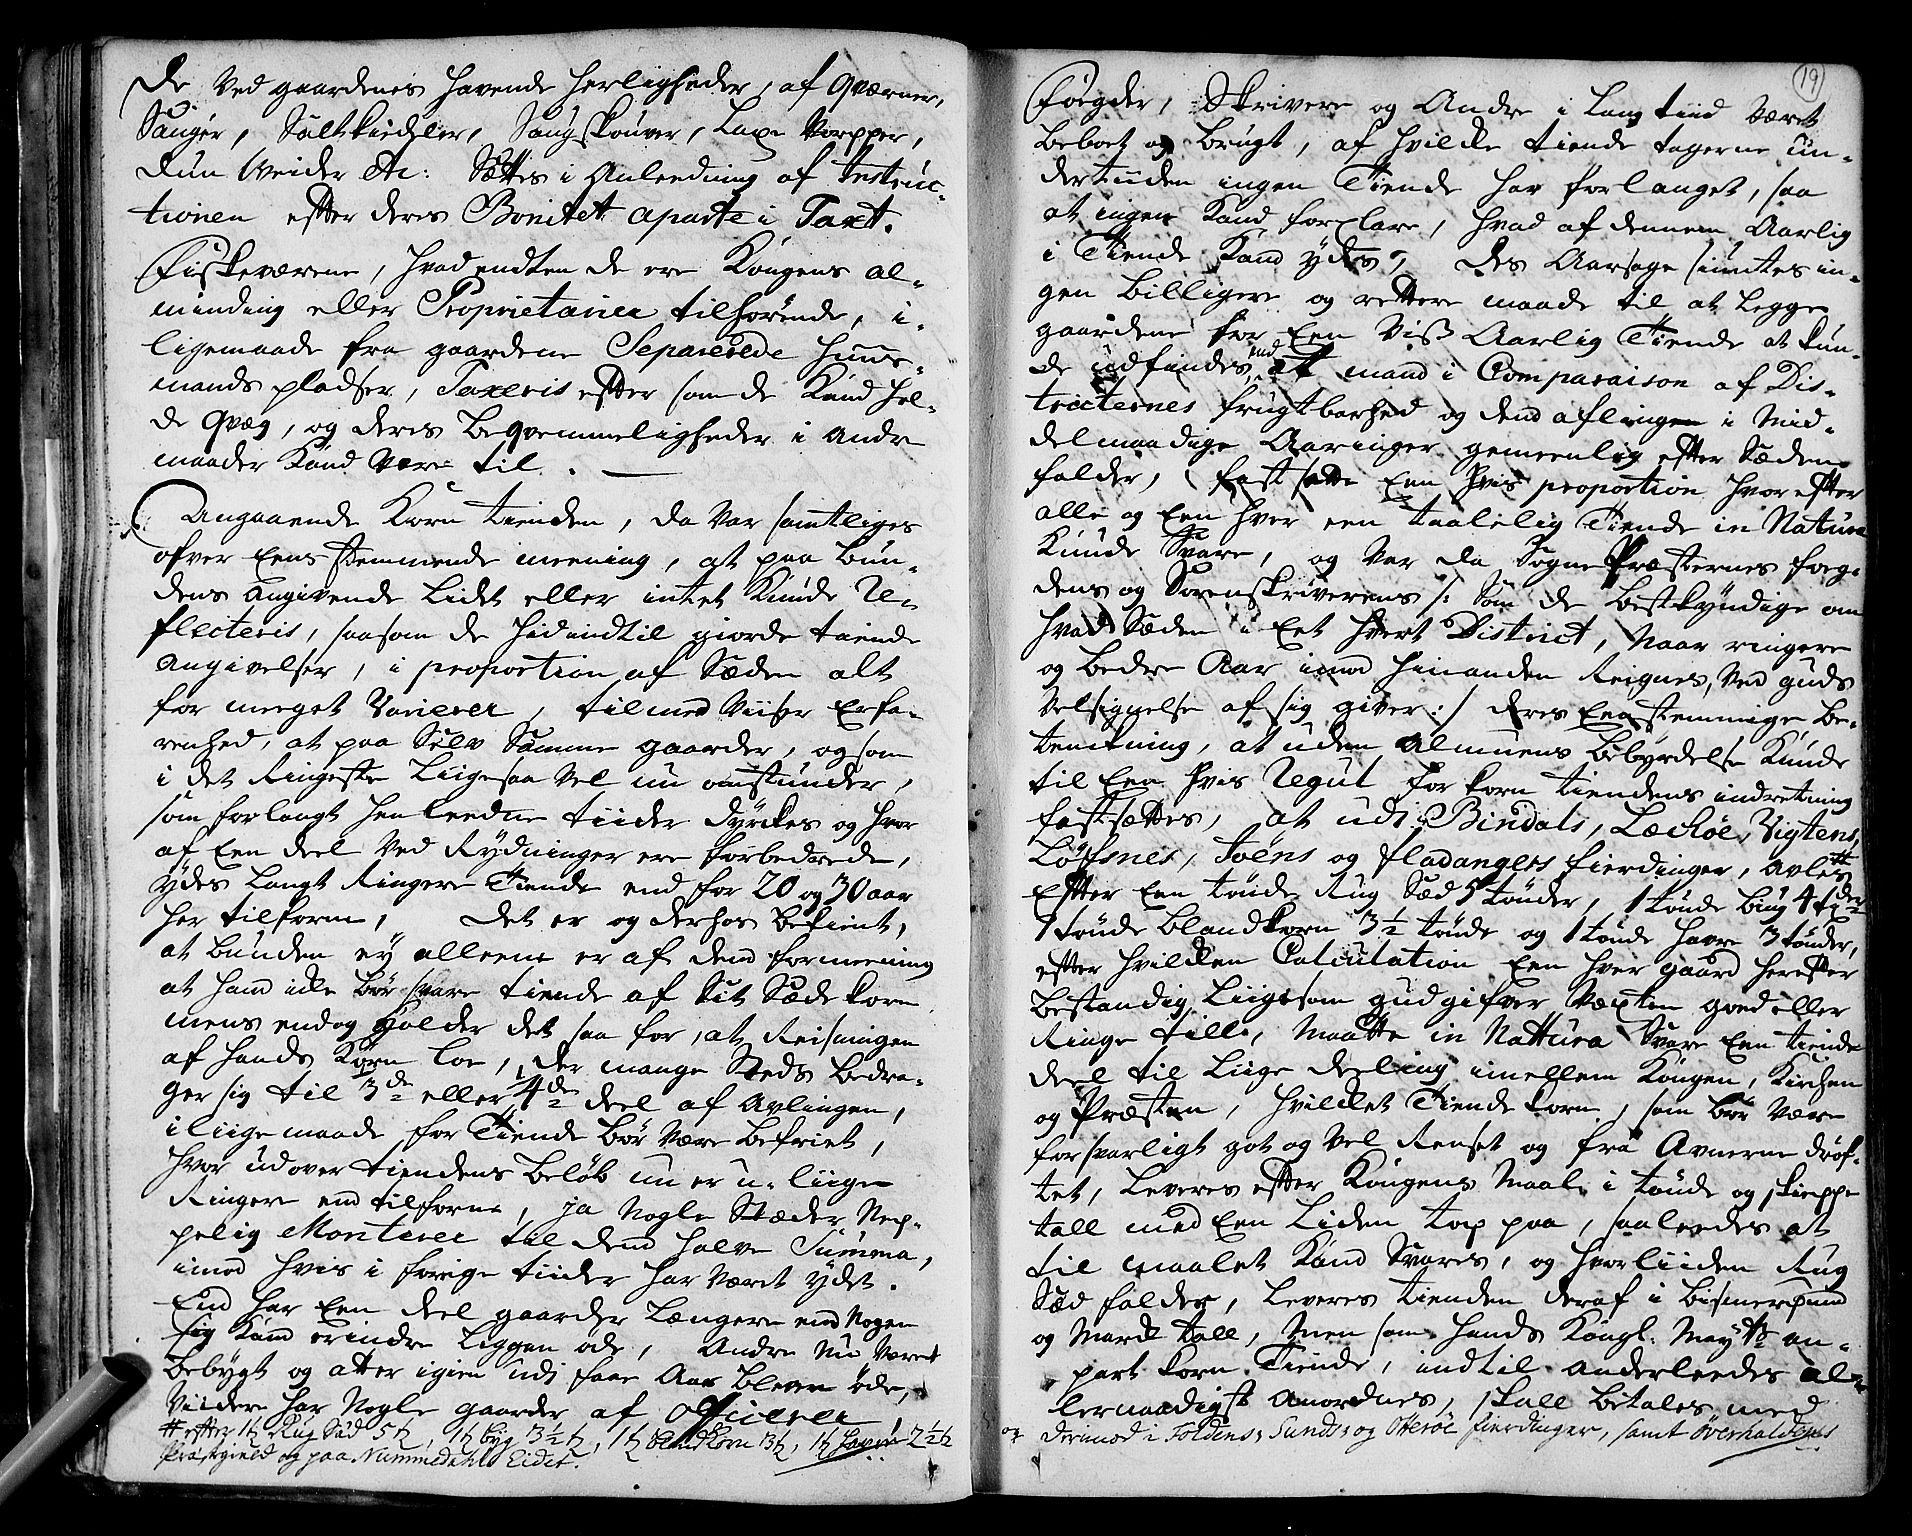 De ved gaardenes havende herligheder, af qværner,
Sauger, Saltkiedler, Saugskouver, Laxe Varpper,
dun Weider etc: Settes i Anleedning af Instruc-
tionen efter deres Bonitet aparte i Taxt.
Fiskeværene, hvad endten de ere Kongens al-
minding eller Proprietairer tilhørende, i-
ligemaade fra gaardene Separerede Huus-
mands pladser, Taxeris efter som de Kand hol-
de qvæg, og deres Beqvemmeligheder i andre
maader Kand være til.
Angaaende Korn tienden, da var samtliges
ofver Eens stemmende meening, at paa Bøn-
dens angivende Lidet eller intet Kunde Re-
flecteris, saasom de hidindtil giorde tiende
angivelser, i proportion af Sæden alt
for meeget Varierer, tilmed viiser Erfa-
renhed, at paa Selv Samme gaarder, og som
i det Ringeste Liigesaa vel nu omstunder,
som for langt hen leedne tiider dyrckes og hvor
af Een deel ved Rydninger ere forbedrede,
ydes Langt Ringere Tiende end for 20 og 30 aar
her tilforne, det er og derhos befient,
at bunden ey alleene er af dend formeening
at hand icke bør svare tiende af sit Sæde korn
mens endog holder det saa for, at Reisningen
af hands Korn Loe, der mange Steds bedra-
ger sig til 3de eller 4de deel af Avlingen,
i liige maade for Tiende bør være befriet,
hvor udover tiendens beløb nu er u-liige
Ringere end tilforne, ja Nogle Stæder Nep-
pelig Monterer til dend halve Summa,
imod hvis i forige tiider har været ydet.
End har Een deel gaarder Længere end Nogen
sig Kand erindre Liggen øde, Andre Nu været
bebygt og atter igien udi faae Aar bleven øde,
Viidere har Nogle gaarder af Officerer
# efter 1 t Rug Sæd 5 t, 1 t byg 3½ t, 1 t blandkorn 3 t, 1 t havre 2½ t
Præstegield og paa Nummedahls Eidet.
19
Foegder, Skrivere og Andre i Lang tiid været
beboet og brugt, af hvilcke tiende tagerne un-
dertiiden ingen Tiende har forlanget, saa
at ingen Kand forclare, hvad af dennem Aarlig
i Tiende Kand ydes, Des Aarsage siuntes in-
gen billigere og rettere maade til at Legge
gaardene for Een viss Aarlig Tiende at kun-
de udfindes, end at mand i Comparaison af Dis-
tricternes frugtbarhed og dend aflingen i mid-
delmaadige Aaringer gemeenlig efter Sæden
falder, fastsatte Een Hvis proportion hvor efter
alle og Een hver een taalelig Tiende in Natura
Kunde Svare, og var da Sogne Præsternes foeg-
dens og Sorenskriverens /: Som de bestkyndige om
hvad Sæden i Eet hvert District, Naar ringere
og bedre Aar imod hinanden Reignes, ved guds
velsignelse af sig giver :/ deres Eenstemmige be-
tenckning, at uden almuens bebyrdelse Kunde
til Een Hvis Regul for korn tiendens indretning
fastsættes, at udi Bindals, Leckøe, Vigtens,
Løfsnes, Foens og Fladangers fierdinger, avles #
Efter Een tønde Rug Sæd 5 tønder, 1 tønde biug 4 tdr
1 tønde blandkorn 3½ tønde og 1 tønde havre 3 tønder,
efter hvilcken Calculation Een hver gaard herefter
bestandig Liigesom gud gifver Væxten goed eller
Ringe till, maatte in Nattura Svare Een tiende
deel til Liige deeling imellem Kongen, Kirchen
og Præsten, hvilcket Tiende korn, som bør være
forsvarligt got og vel Renset og fra Avnerne drøf-
tet, Leveres efter Kongens Maal i tønde og skieppe
tall med Een Liden top paa, saaleedes at
til maalet Kand Svares, og hvor liiden Rug
Sæd falder, Leveres tienden deraf i bismerpund
og March tall, men som hands Kongl: Mayts an-
part korn Tiende, indtil anderleedes al-
lernaadigst anordnes, skall betales med
og dermod i Foldens, Sunds og Otterøe fierdinger, samt Overhaldens